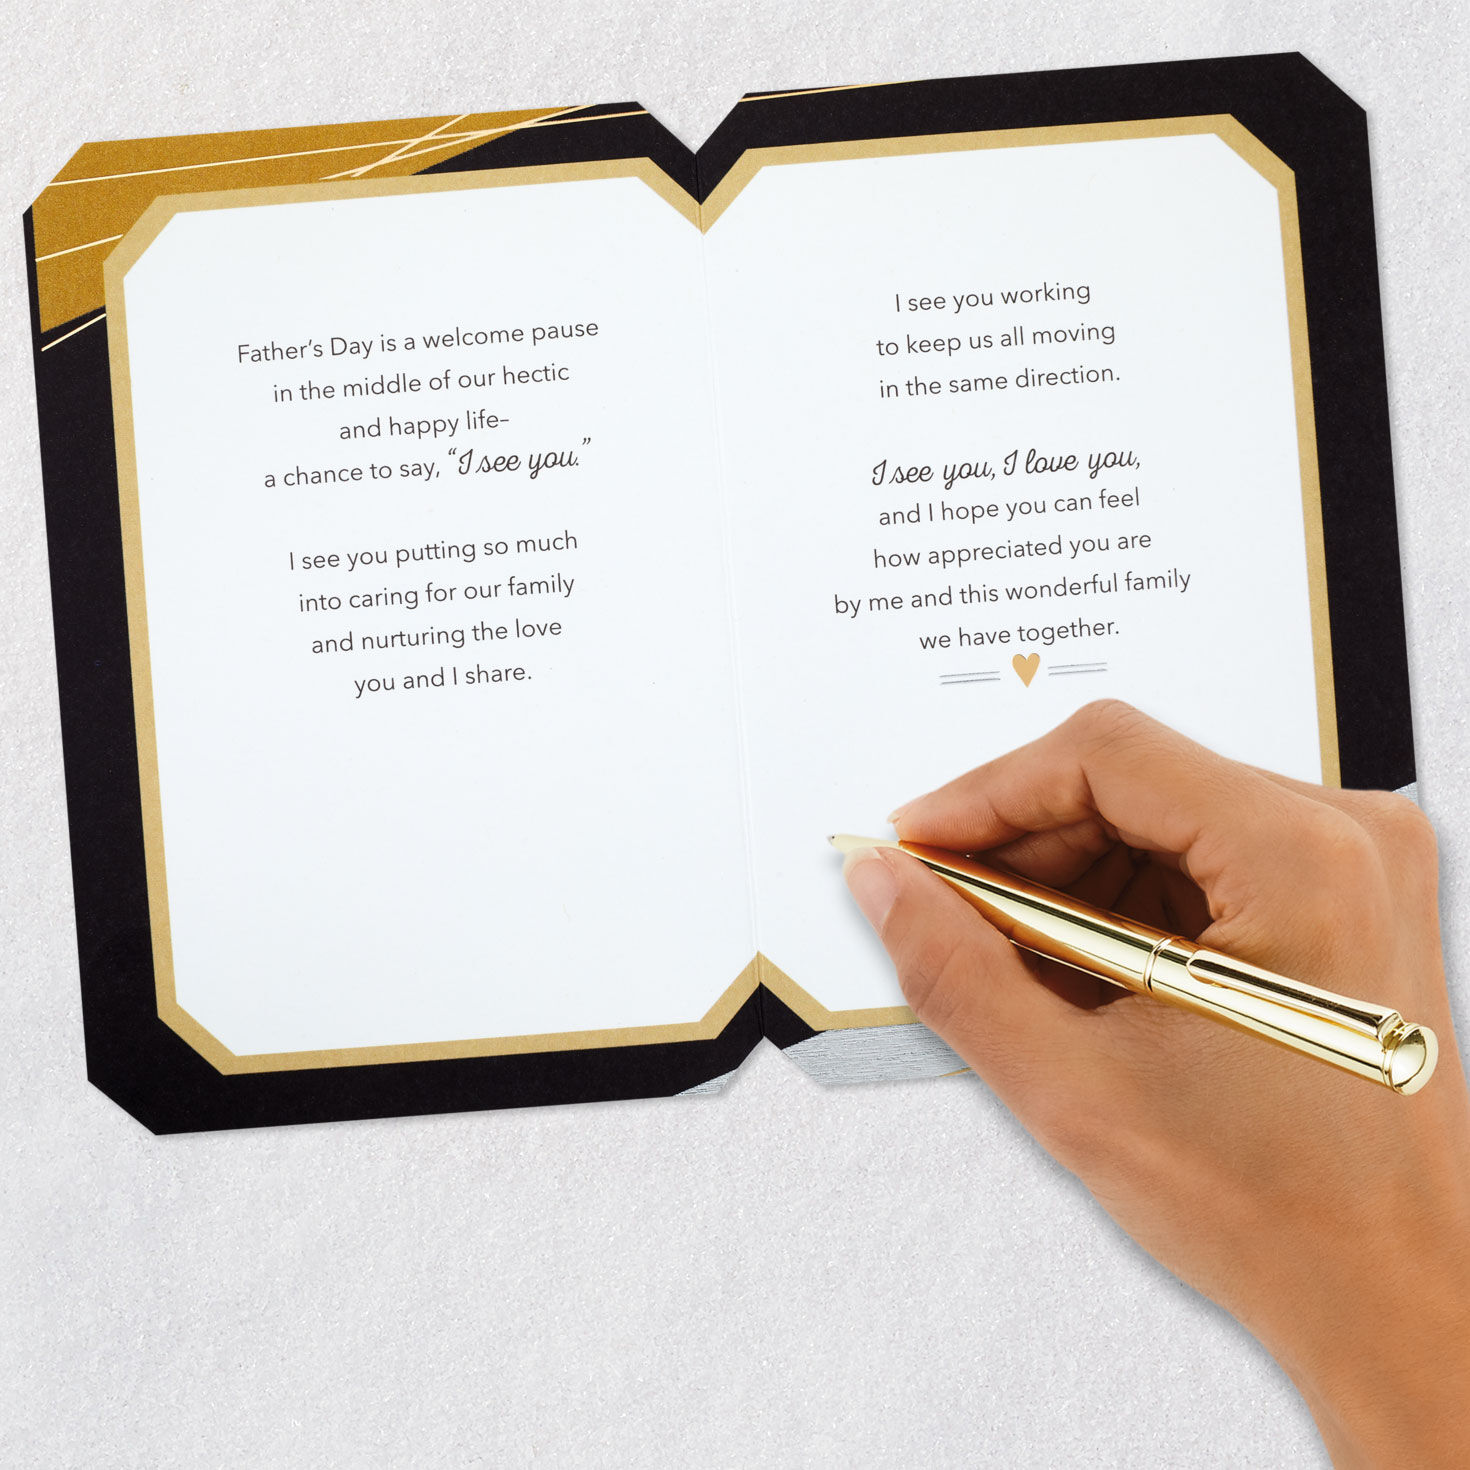 Father's Day is a welcome pause
in the middle of our hectic
and happy life–
a chance to say, “I see you.”
I see you putting so much
into caring for our family
and nurturing the love
you and I share.
I see you working
to keep us all moving
in the same direction.
I see you, I love you,
and I hope you can feel
how appreciated you are
by me and this wonderful family
we have together.